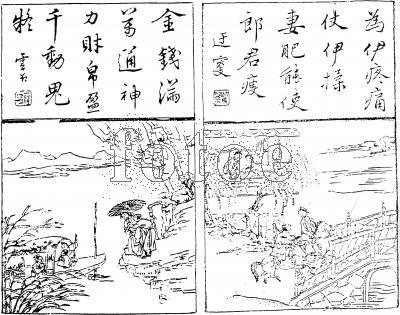 為伊疼痛
仗伊操
妻肥能使
郎君瘦
迂叟
金錢
萬通神
力財帛盈
千動鬼
fotoe